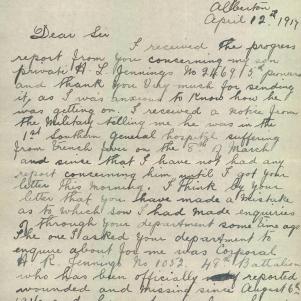 Alberton
April 12th 1917
Dear Sir
I received the progress
report from you concerning my son
private H L Jennings No 2469 5th pioneers
and thank you very much for sending
it, as I was anxious to know how he
was getting on. I received a notice from
the Military telling me he was in the
1st Southern General hospital suffering
from trench fever on the 8th of March
and since that I have not had any
report concerning him until I got your
letter this morning. I think by your
letter that you have made a mistake
as to which son I had made enquiries
through your department some time ago
The one I asked your department to
enquire about for me was Corporal
H R Jennings No 1053 48th Battalion
who has been officially reported
wounded and missing since August 6th